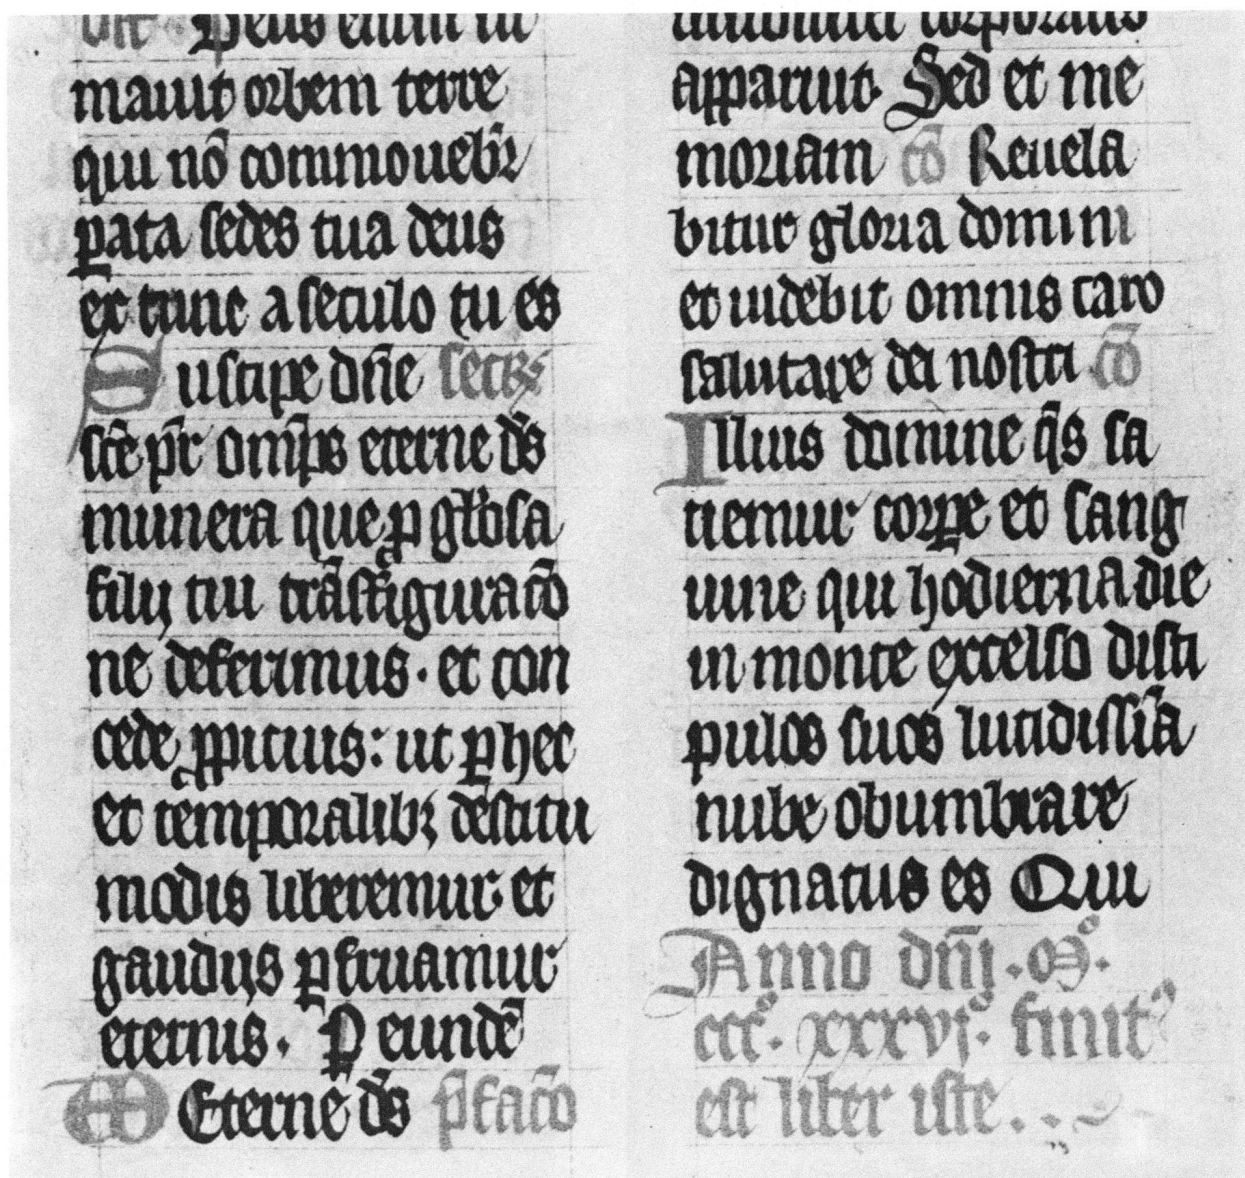 Deus enim fir
mauit orbem terre
qui nō commouebr̄
ꝑata sedes tua deus
ex tunc a seculo tu es
Suscipe dn̄e secr̄
scē pr̄ omp̄s eterne ds̄
munera que ꝓ gl̄osa
filij tui trāsfiguracō
ne deferimus · et con
cede ꝓpicius : ut ꝑ hec
et temporalibꝫ destitu
modis liberemur et
gaudijs ꝑfruamur
eternis · P eundē
Eterne ds̄ p̄facō
inuisibilis corporalis
apparuit · Sed et me
moriam cō Reuela
bitur gloria domini
et uidebit omnis caro
salutare dei nostri cō
Illius domine qs̄ sa
tiemur corꝑe et sang
uine qui hodierna die
in monte excelso disci
pulos suos lucidissīa
nube obumbrare
dignatus es Qui
Anno dn̄i · mͦ ·
cccͦ · xxxvjͦ · finitꝰ
est liber iste . . ~